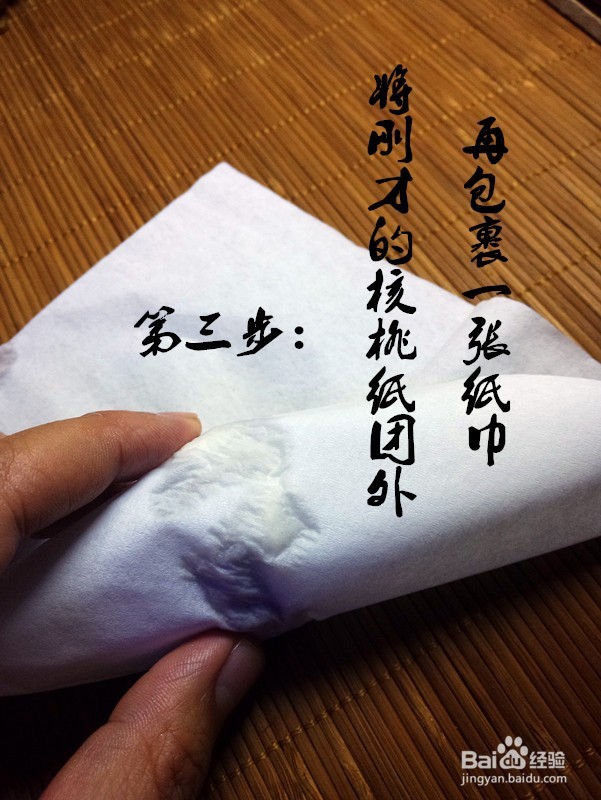 第三步：
将刚才的核桃纸团外
再包裹一张纸巾
Bai 经验
jingyan.baidu.com